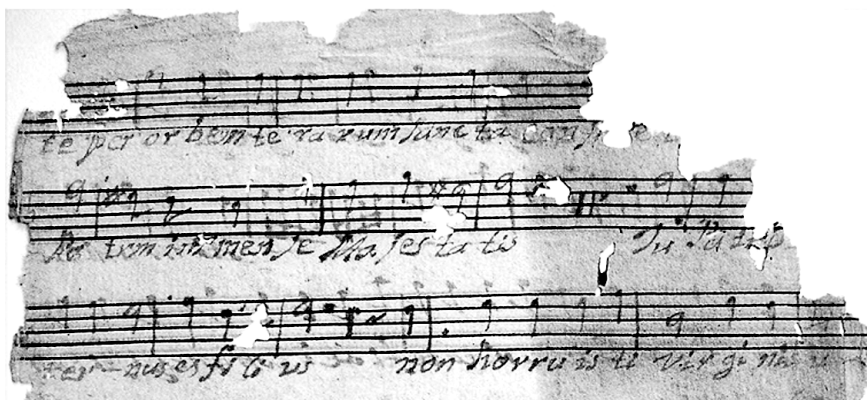 te per orbem te ra rum sanc ta Con fi te
Pa trem im men se Ma jes ta tis Tu Pa tris
ter-nus es fi li us non horru is ti vir gi nis u